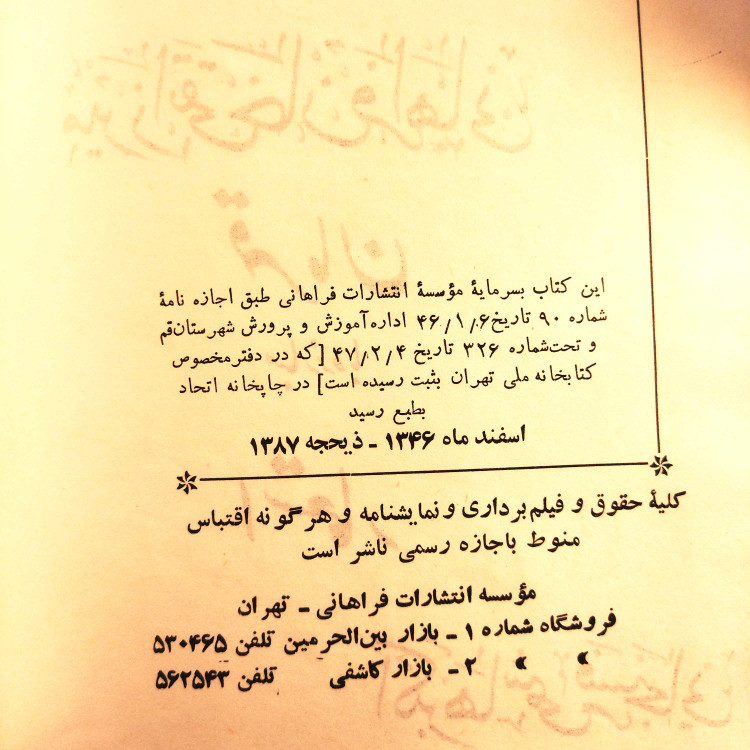 این کتاب بسرمایهٔ مؤسسهٔ انتشارات فراهانی طبق اجازه نامهٔ
شماره ۹۰ تاریخ ۴۶/۱/۶ اداره آموزش و پرورش شهرستان قم
و تحت شماره ۳۲۶ تاریخ ۴۷/۲/۴ [که در دفتر مخصوص
کتابخانه ملی تهران بثبت رسیده است] در چاپخانه اتحاد
بطبع رسید
اسفند ماه ۱۳۴۶ - ذیحجه ۱۳۸۷
کلیهٔ حقوق و فیلم برداری و نمایشنامه و هر گونه اقتباس
منوط باجازه رسمی ناشر است
مؤسسه انتشارات فراهانی - تهران
فروشگاه شماره ۱ - بازار بین‌الحرمین تلفن ۵۳۰۴۶۵
» » ۲ - بازار کاشفی تلفن ۵۶۲۵۴۳